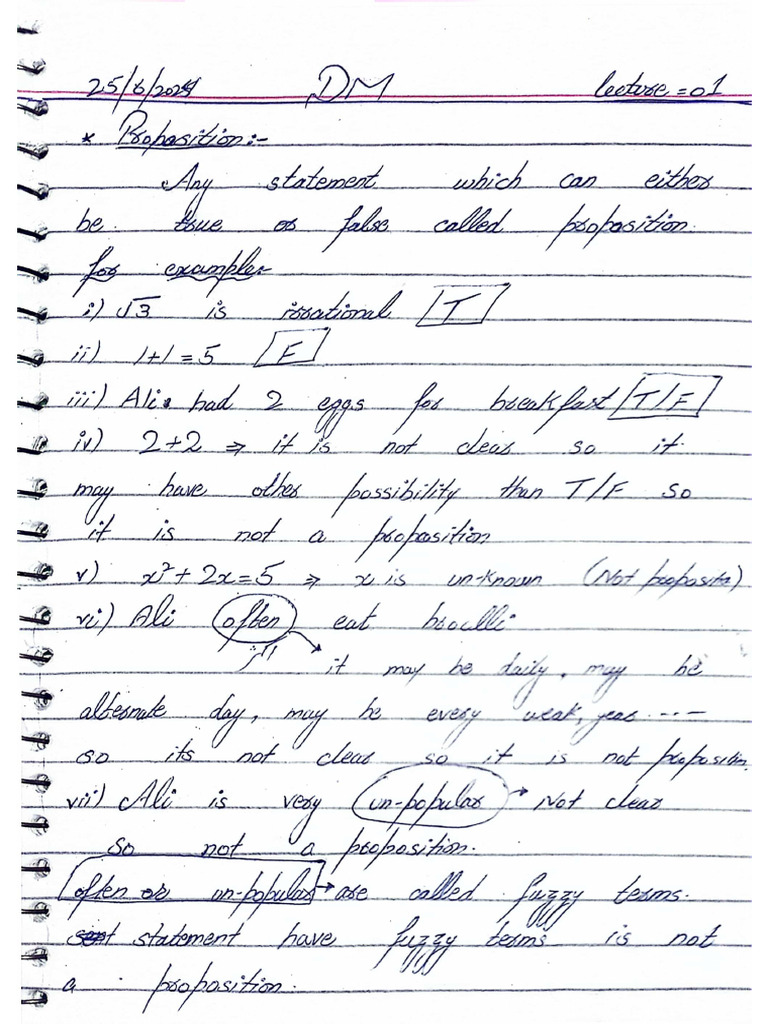 25/6/2024 DM lecture = 01
* Proposition:-
Any statement which can either
be true or false called proposition.
for example:-
i) √3 is irrational [T]
ii) 1+1=5 [F]
iii) Ali had 2 eggs for breakfast [T/F]
iv) 2+2 ⇒ it is not clear so it
may have other possibility than T/F so
it is not a proposition
v) x²+2x=5 ⇒ x is un-known (Not proposito)
vi) Ali often eat broculli
→ it may be daily, may be
alternate day, may be every weak, year ----
so its not clear so it is not proposition.
vii) Ali is very un-popular → Not clear
so not a proposition.
often or un-popular → are called fuzzy terms.
statement have fuzzy terms is not
a proposition.